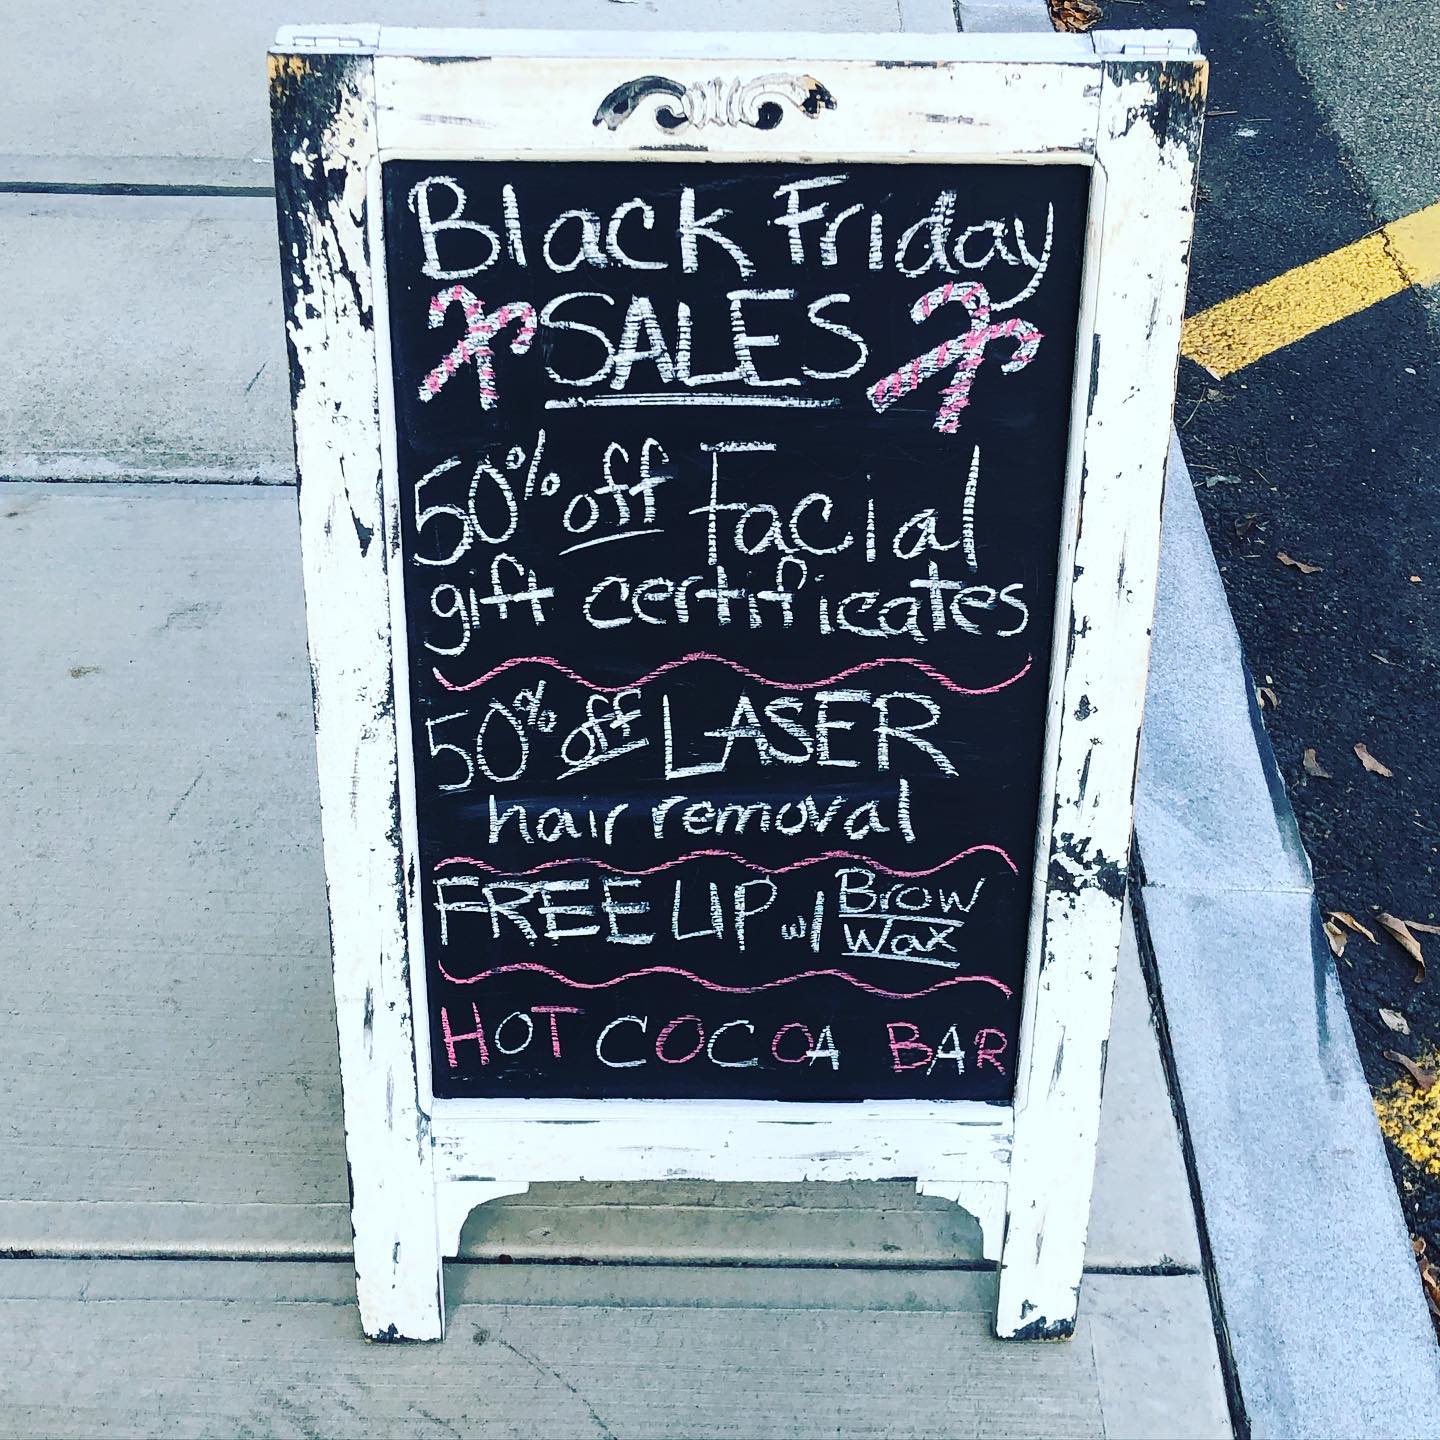 Black Friday
SALES
50% off Facial
gift certificates
50% off LASER
hair removal
FREE LIP w/ Brow
Wax
HOT COCOA BAR